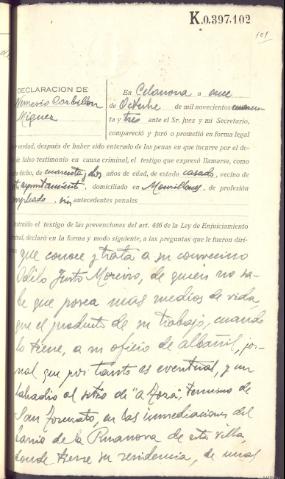 K.0.397.102
101
DECLARACION DE
Nemesio Carballon
Miguez
En Celanova a once
de Octubre de mil novecientos cuaren-
ta y tres ante el Sr. Juez y mi Secretario,
compareció y juró o prometió en forma legal
verdad, después de haber sido enterado de las penas en que incurre el reo
de falso testimonio en causa criminal, el testigo que expresó llamarse, como
dicho, de cuarenta y dos años de edad, de estado casado, vecino de
domiciliado en de profesión
empleado sin antecedentes penales
Instruído el testigo de las prevenciones del art. 436 de la Ley de Enjuiciamiento
criminal, declaró en la forma y modo siguiente, a las preguntas que le fueron dirigi-
que conoce y trata a su convecino
Odilo Justo de quien no sa-
be que posea mas medios de vida
que el producto de su trabajo, cuando
lo tiene, a su oficio de albañil, jor-
nal que por tanto es eventual, y un
al sitio de "a termino de
San en las inmediaciones del
barrio de la de esta villa,
donde tiene su residencia, de unas